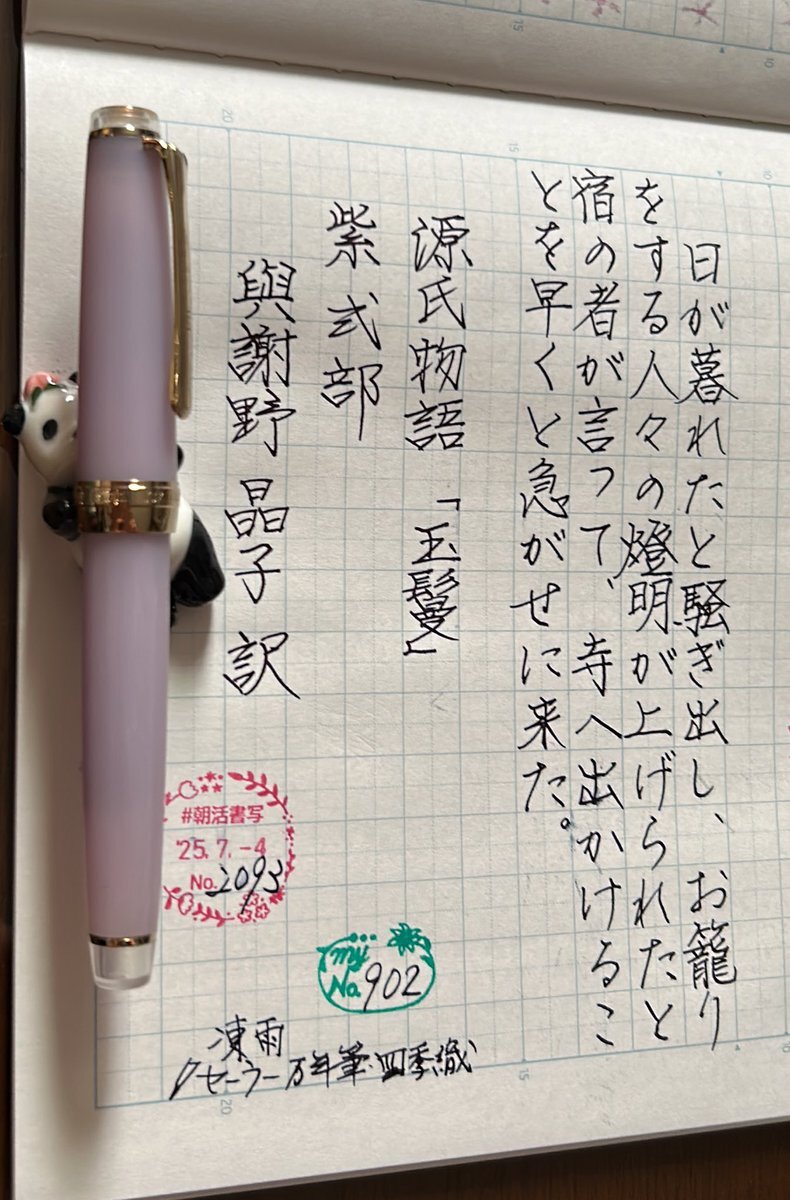 日が暮れたと騒ぎ出し、お籠り
をする人々の燈明が上げられたと
宿の者が言って、寺へ出かけるこ
とを早くと急がせに来た。
源氏物語「玉鬘」
紫式部
與謝野晶子訳
#朝活書写
'25.7.-4
No.2093
my
No.902
凍雨
セーラー万年筆・四季織
20
15
10
20
15
15
10